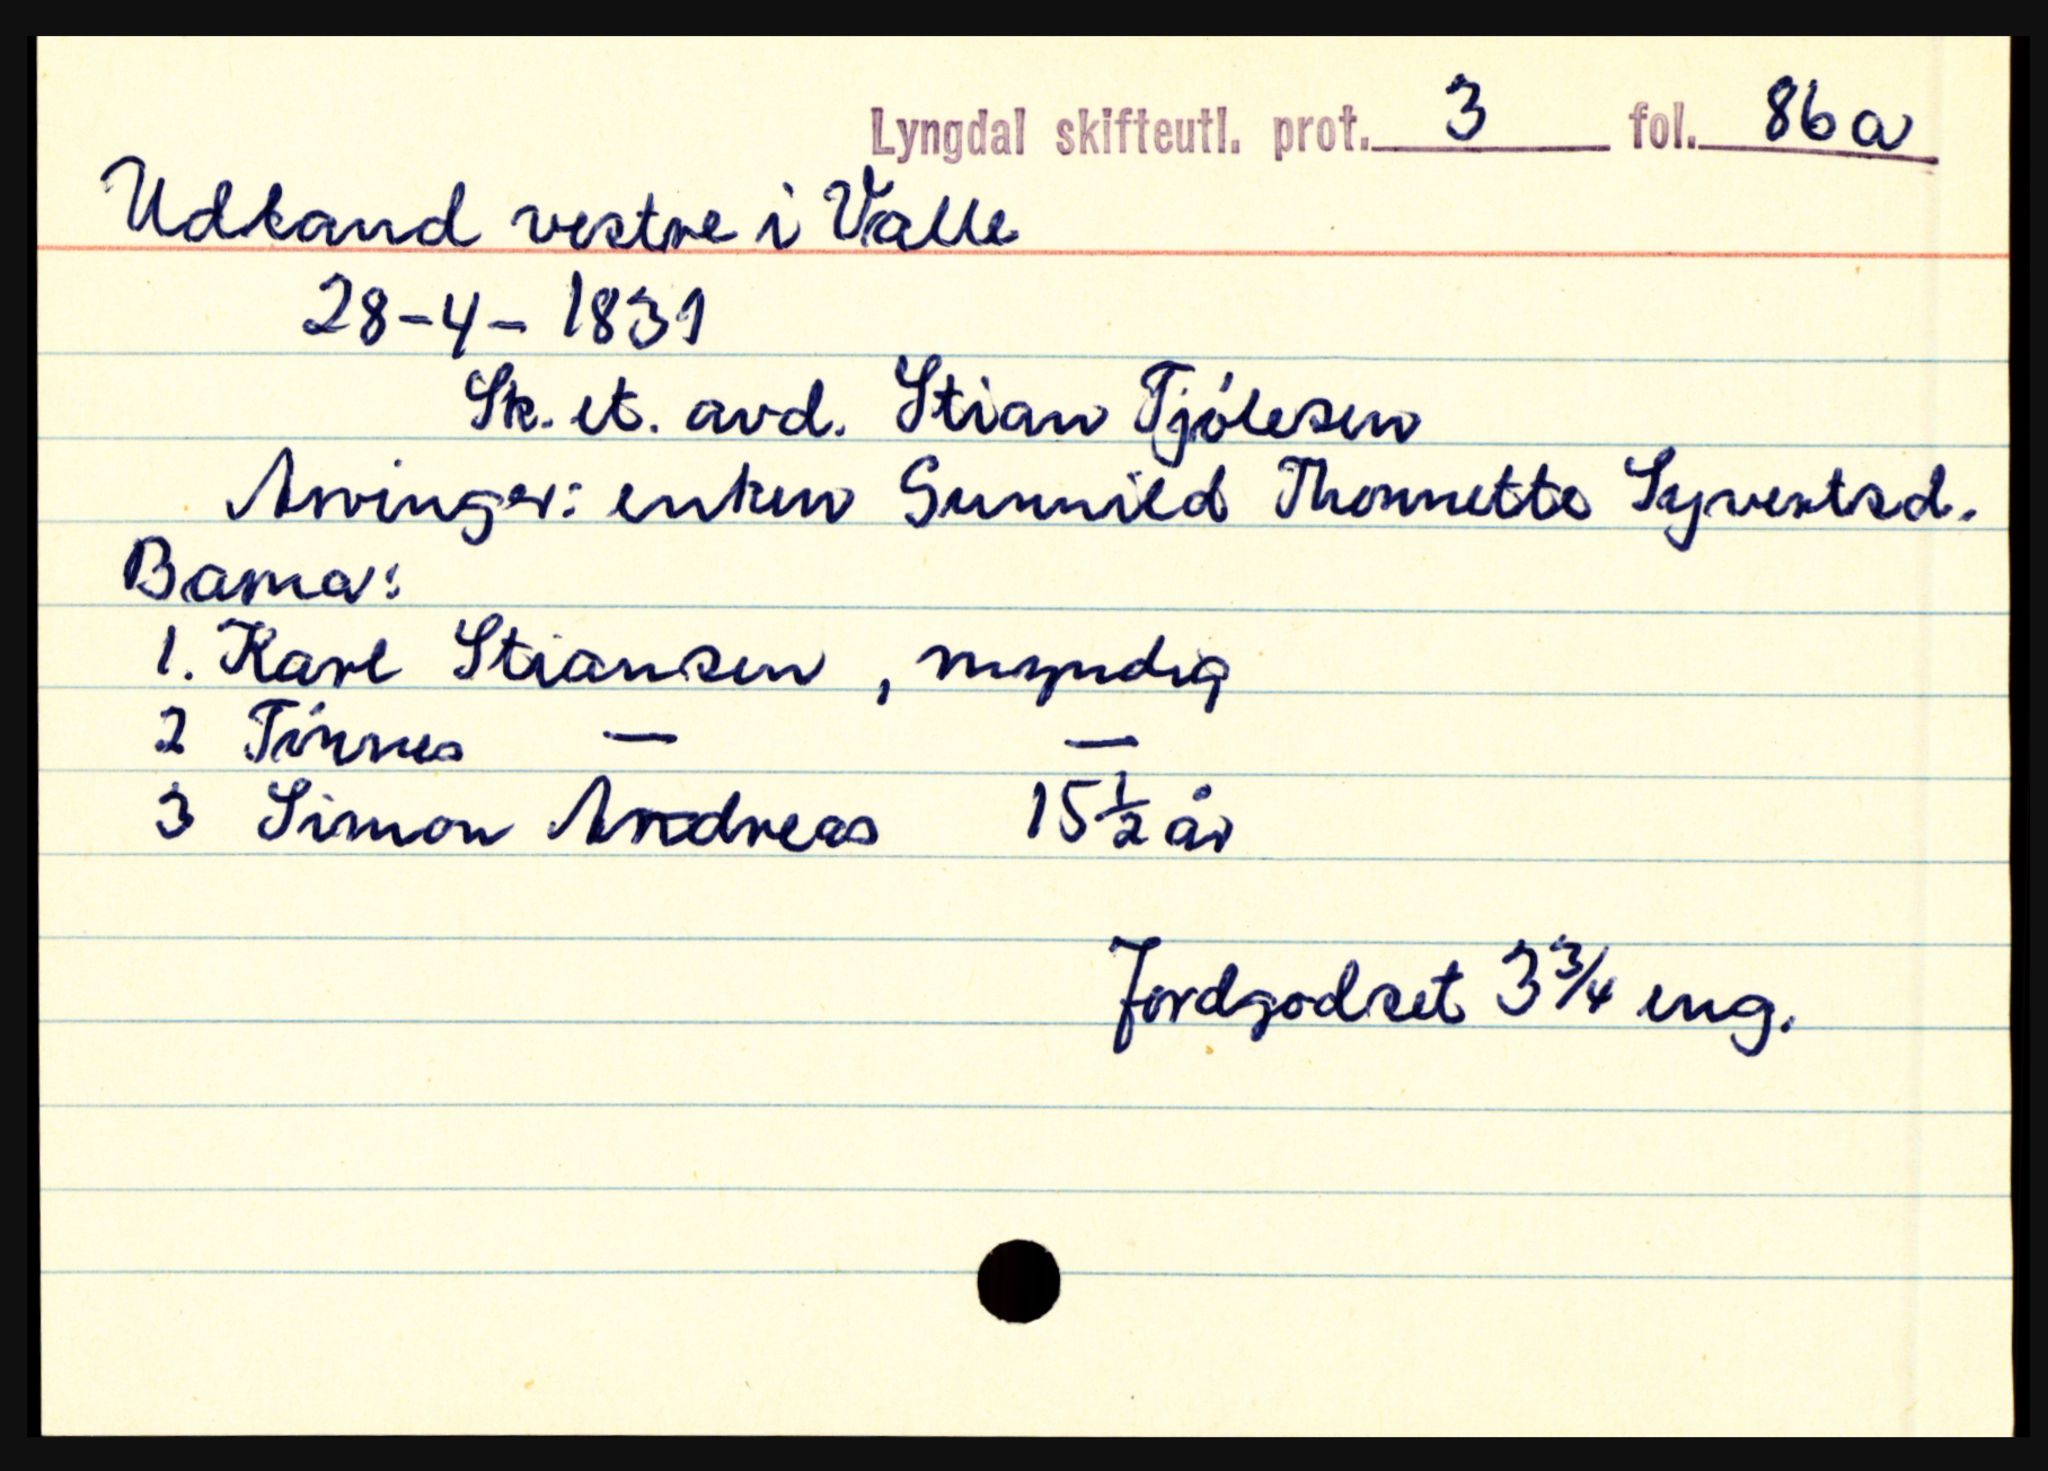 Lyngdal skifteutl. prot. 3 fol. 86a
Udland vestre i Valle
28-4-1831
Sk. et. avd. Stian Tjólesen
Arvinger: enken Gunnild Thonnette Syvertsd.
Barna:
1. Karl Stiansen, myndig
2 Tönnes — —
3 Simon Andreas 15½ år
Jordgodset 3 3/4 eng.